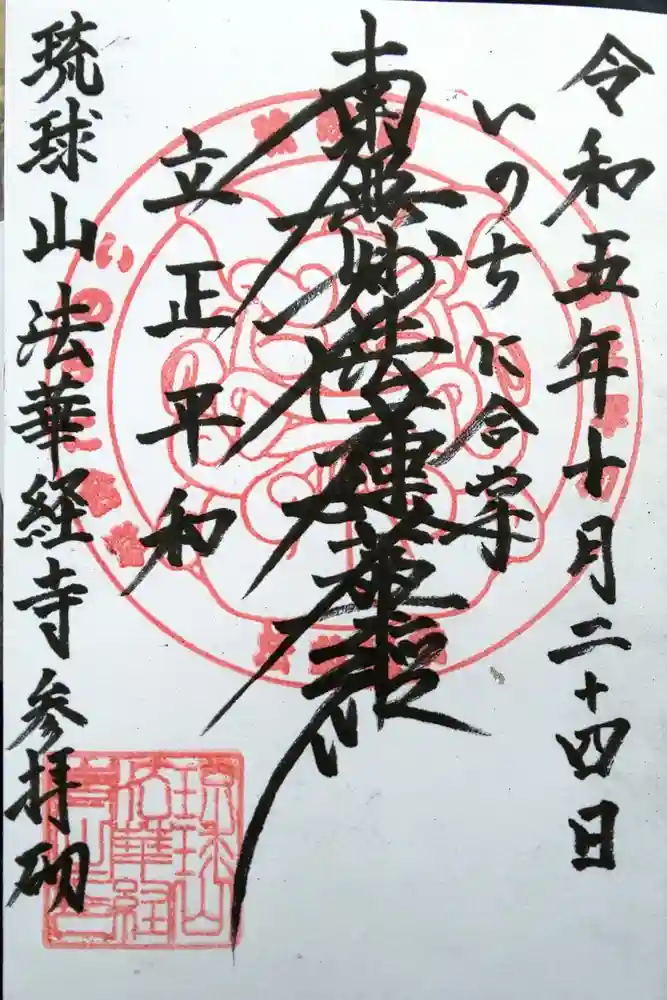 令和五年十月二十四日
いのちに合掌
南無妙法蓮華經
立正平和
琉球山法華経寺参拝砌
琉球山
法華経